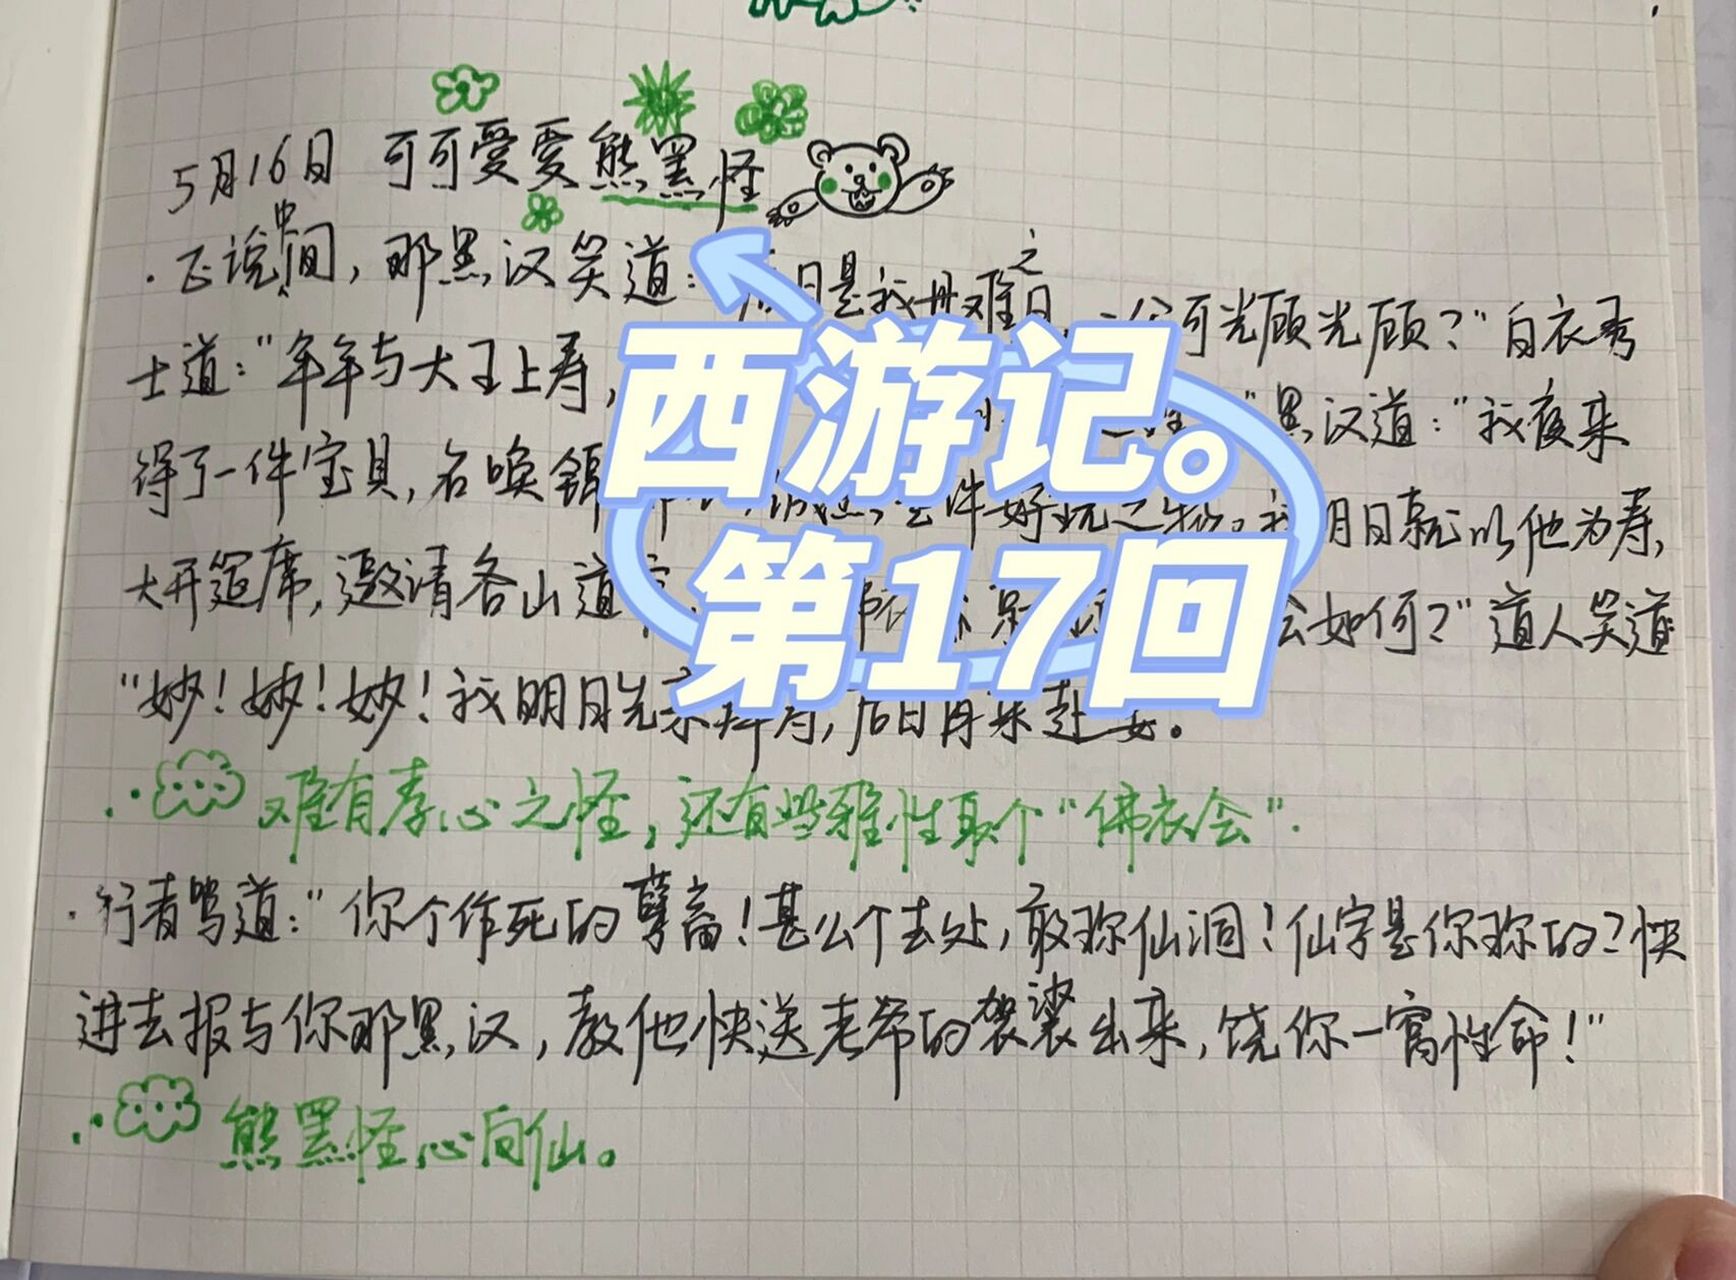 5月16日 可可爱爱熊黑怪
·正说中间，那黑汉笑道：日是我母难之日，可光顾光顾？"白衣秀
士道："年年与大王上寿，"黑汉道："我夜来
得了一件宝贝，名唤锦件好玩之物。我明日就以他为寿，
大开筵席，邀请各山道会如何？"道人笑道
"妙！妙！妙！我明日先来拜寿，后日再来赴宴。
西游记。
第17回
难有孝心之怪，还有些雅性取个"佛衣会".
·行者骂道："你个作死的孽畜！甚么个去处，敢称仙洞！仙字是你称的？快
进去报与你那黑汉，教他快送老爷的袈裟出来，饶你一窝性命！"
熊黑怪心向仙。